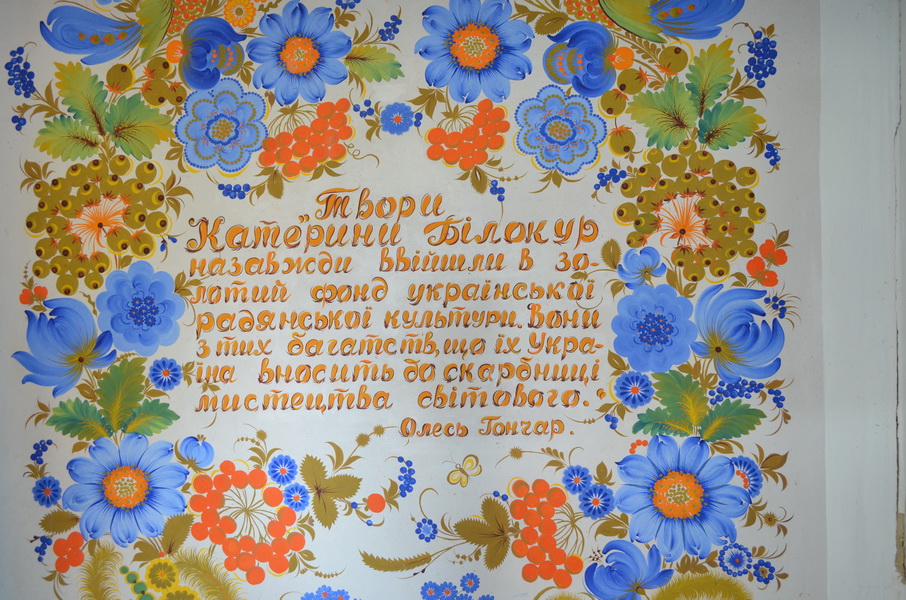 "Твори
Катерини Білокур
назавжди ввійшли в зо-
лотий фонд української
радянської культури. Вони
з тих багатств, що їх Укра-
їна вносить до скарбниці
мистецтва світового."
Олесь Гончар.